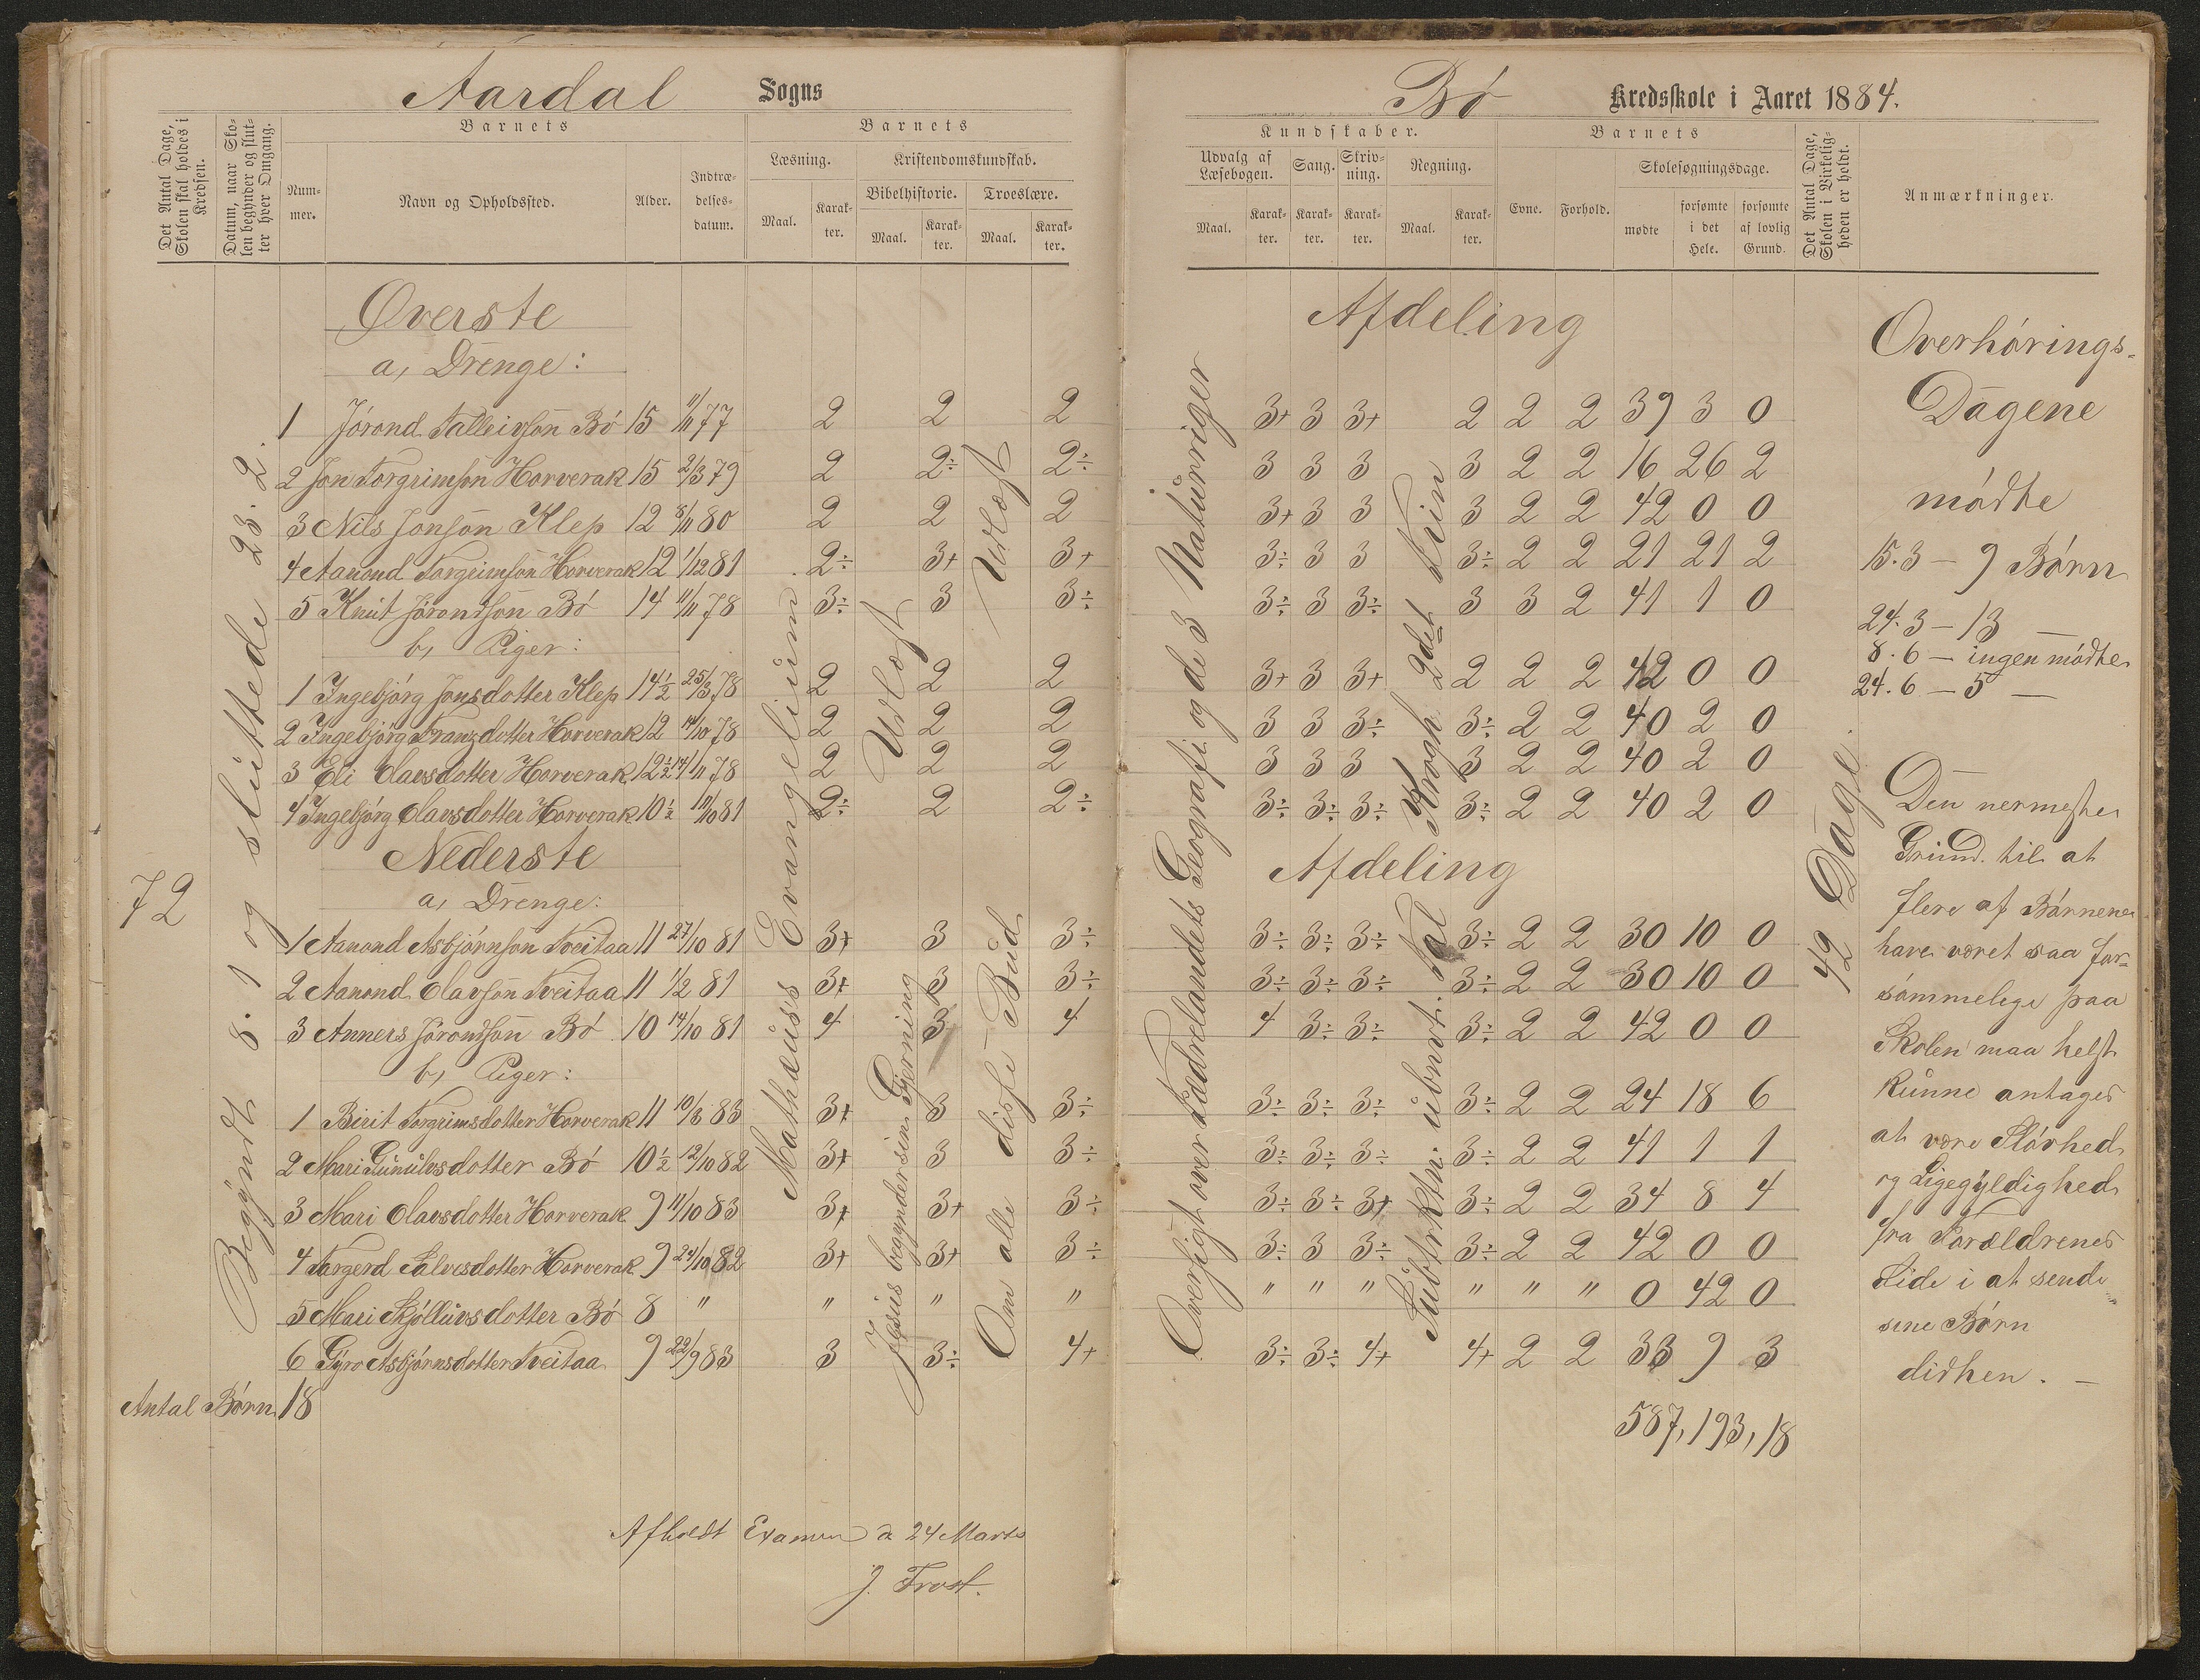 Aardal Sogns
Det Antal Dage, Skolen skal holdes i Kredsen.
Datum, naar Skolen begynder og slutter hver Omgang.
Barnets
Nummer.
Navn og Opholdssted.
Alder.
Indtrædelsesdatum.
Barnets
Læsning.
Kristendomskundskab.
Bibelhistorie.
Troeslære.
Maal. Karakter. Maal. Karakter. Maal. Karakter.
72
Begyndt 8. 1 og sluttede 23. 2.
Øverste
a, Drenge:
1 Jórond Talleivson Bó 15 11/11 77 2 2 2
2 Jon Torgrimson Horverak 15 2/3 79 2 2÷ 2÷
3 Nils Jonson Klep 12 8/11 80 2 2 2
4 Aanond Torgrimson Horverak 12 1/12 81 2÷ 3+ 3+
5 Knut Jórondson Bó 14 11/11 78 3÷ 3 3÷
b, Piger:
1 Ingebjórg Jonsdotter Klep 14½ 25/3 78 2 2 2
2 Ingebjórg Franzdotter Horverak 12 14/10 78 2 2 2
3 Eli Olavsdotter Horverak 12½ 14/11 78 2 2 2
4 Ingebjórg Olavsdotter Horverak 10½ 11/10 81 2÷ 2 2÷
Nederste
a, Drenge:
1 Aanond Asbjórnson Tveitaa 11 27/10 81 3+ 3 3÷
2 Aanond Olavson Tveitaa 11 1/2 81 3+ 3 3÷
3 Anners Jórondson Bó 10 14/10 81 4 3 4
b, Piger:
1 Birit Torgrimsdotter Horverak 11 10/3 83 3+ 3 3÷
2 Mari Gunulvsdotter Bó 10½ 12/10 82 3+ 3 3÷
3 Mari Olavsdotter Horverak 9 11/10 83 3+ 3+ 3÷
4 Targerd Salvesdotter Horverak 9 24/10 82 3+ 3+ 3÷
5 Mari Kjólluvsdotter Bó 8 " " " "
6 Gyro Asbjórnsdotter Tveitaa 9 22/9 83 3 3÷ 4+
Antal Børn 18
Mathæuss Evangelium
Udlæst
Jesus begynder sin Gjerning
Udlæst
Om alle disse Bud
Afholdt Examen d 24 Marts
J. Frost.
Bó Kredsskole i Aaret 1884.
Kundskaber.
Udvalg af Læsebogen.
Sang.
Skrivning.
Regning.
Maal. Karakter. Karakter. Karakter. Maal. Karakter.
Barnets
Evne. Forhold.
Skolesøgningsdage.
mødte
forsømte i det Hele.
forsømte af lovlig Grund.
Det Antal Dage, Skolen i Virkeligheden er holdt.
Anmærkninger.
Afdeling
3+ 3 3+ 2 2 2 39 3 0
3 3 3 3 2 2 16 26 2
3+ 3 3 3 2 2 42 0 0
3÷ 3 3 3÷ 2 2 21 21 2
3÷ 3 3÷ 3 3 2 41 1 0
3+ 3 3+ 2 2 2 42 0 0
3 3 3÷ 3÷ 2 2 40 2 0
3 3 3 3 2 2 40 2 0
3÷ 3÷ 3÷ 3÷ 2 2 40 2 0
Afdeling
3÷ 3÷ 3÷ 3÷ 2 2 30 10 0
3÷ 3÷ 3÷ 3÷ 2 2 30 10 0
4 3÷ 3÷ 3÷ 2 2 42 0 0
3÷ 3÷ 3÷ 3÷ 2 2 24 18 6
3÷ 3÷ 3÷ 3÷ 2 2 41 1 1
3÷ 3÷ 3+ 3÷ 2 2 34 8 4
3÷ 3 3÷ 3÷ 2 2 42 0 0
" " " " " " 0 42 0
3÷ 3÷ 4+ 4+ 2 2 33 9 3
587, 193, 18
Oversigt over Fædrelandets Geografi og de 3 Naturriger
Subtrktn. ubnvt. Tal
Krogh 2det Trin
42 Dage.
Overhórings-
Dagene
módte
15.3 — 9 Børn
24.3 — 13 —
8.6 — ingen módte
24.6 — 5 —
Den nermeste
Grund til at
flere af Bórnene
have været saa for-
sómmelige paa
Skolen maa helst
kunne antages
at være Slóvhed
og Ligegyldighed
fra Forældrenes
Side i at sende
sine Børn
didhen. —